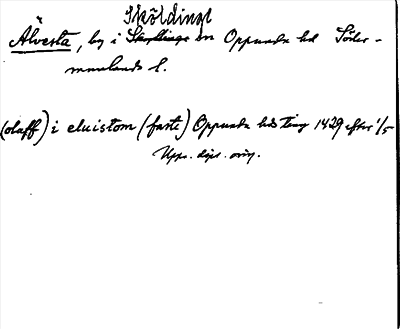 Sköldinge
Älvesta, by i Skyllinge sn Oppunda hd Söder-
manlands l.
(olaff) i eluistom (faste) Oppunda hds ting 1429 efter 1/5
Upps. dipl. orig.